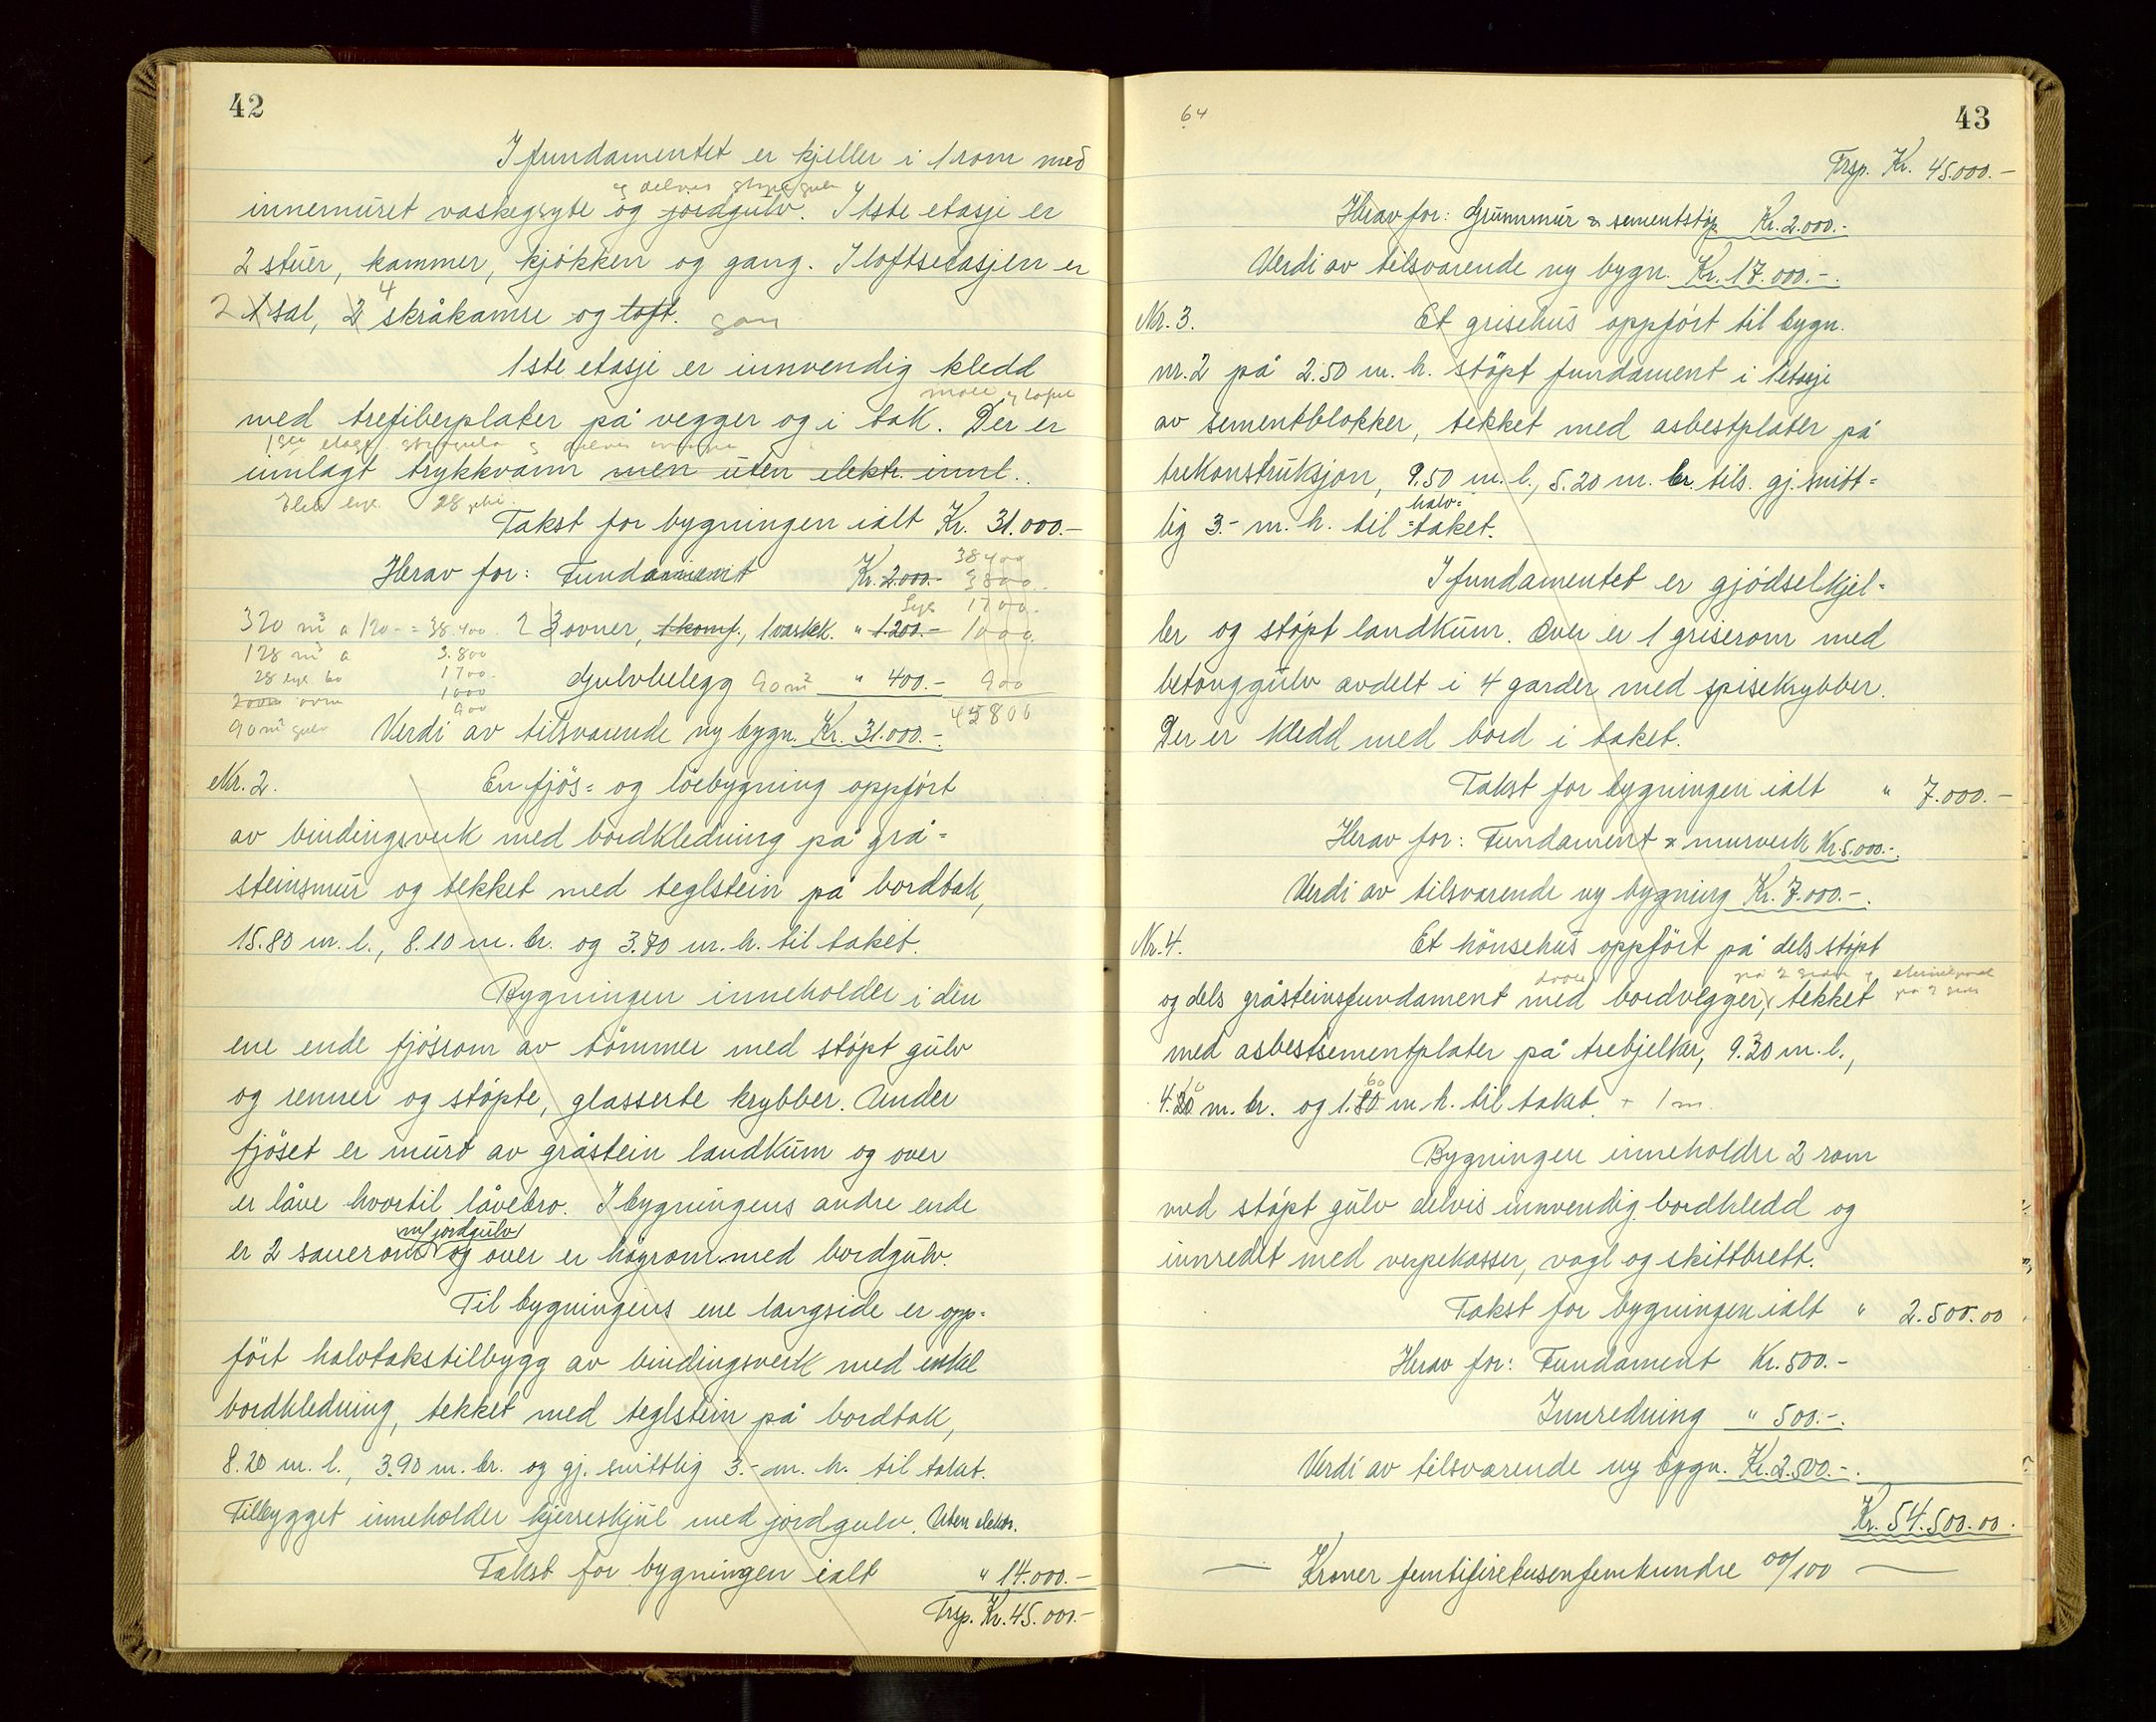 42
I fundamentet er kjeller i 1 rom med
og delvis støpt gulv
innemuret vaskegryte og jordgulv. I 1ste etasje er
2 stuer, kammer, kjøkken og gang. I loftsetasjen er
4
2 1 sal, 2 skråkamre og loft. gan
1ste etasje er innvendig kledd
malt og tapet
med trefiberplater på vegger og i tak. Der er
1ste etasje
innlagt trykkvann men uten elektr. innl.
Elek lys. 28
Takst for bygningen ialt Kr. 31.000.-
38400
Herav for: Fundament Kr. 2.000.- 3800
Lys 1700.
320 m3 a 120.- = 38.400 2 3 ovner, 1 komf., 1 vaskek. " 1.200.- 1000.
128 m2 a 3.800
28 lys 60 1700.
Gulvbelegg 90 m2 " 400.- 900
2 ovn 1000
900
45800
90 m2 gulv Verdi av tilsvarende ny bygn. Kr. 31.000.-.
Nr. 2. En fjøs= og løebygning oppført
av bindingsverk med bordkledning på grå=
steinsmur og tekket med teglstein på bordtak,
15.80 m. l., 8.10 m. br. og 3.70 m. h. til taket.
Bygningen inneholder i den
ene ende fjøsrom av tømmer med støpt gulv
og renner og støpte, glasserte krybber. Under
fjøset er murt av gråstein landkum og over
er låve hvortil låvebro. I bygningens andre ende
m/ jordgulv
er 2 sauerom og over er høyrom med bordgulv.
Til bygningens ene langside er opp=
ført halvtakstilbygg av bindingsverk med enkel
bordkledning, tekket med teglstein på bordtak,
8.20 m. l., 3.90 m. br. og gj. snittlig 3.- m. h. til taket.
Tilbygget inneholder kjerreskjul med jordgulv. Uten elektr.
Takst for bygningen ialt " 14.000.-
Trsp. Kr. 45.000.-
64
43
Trsp. Kr. 45.000.-
Herav for: Grunnmur & sementstøp Kr. 2.000.-
Verdi av tilsvarende ny bygn. Kr. 17.000.-.
Nr. 3. Et grisehus oppført til bygn.
nr. 2 på 2.50 m. h. støpt fundament i 1 etasje
av sementblokker, tekket med asbestplater på
trekonstruksjon, 9.50 m. l., 5.20 m. br. tils. gj. snitt=
halv=
lig 3.- m. h. til =taket.
I fundamentet er gjødselkjel=
ler og støpt landkum. Over er 1 griserom med
betonggulv avdelt i 4 garder med spisekrybber.
Der er kledd med bord i taket.
Takst for bygningen ialt " 7.000.-
Herav for: Fundament & murverk Kr. 5.000.-.
Verdi av tilsvarende ny bygning Kr. 7.000.-.
Nr. 4. Et hønsehus oppført på dels støpt
på 2 sider og
på 2 sider
og dels gråsteinsfundament med bordvegger, tekket
med asbestsementplater på trebjelker, 9.30 m. l.,
10 60
4.20 m. br. og 1.80 m. h. til taket + 1 m.
Bygningen inneholder 2 rom
med støpt gulv delvis innvendig bordkledd og
innredet med verpekasser, vagl og skittbrett.
Takst for bygningen ialt " 2.500.00
Herav for: Fundament Kr. 500.-
Innredning " 500.-.
Verdi av tilsvarende ny bygn. Kr. 2.500.-.
Kr. 54.500.00.
Kroner femtifiretusenfemhundre 00/100